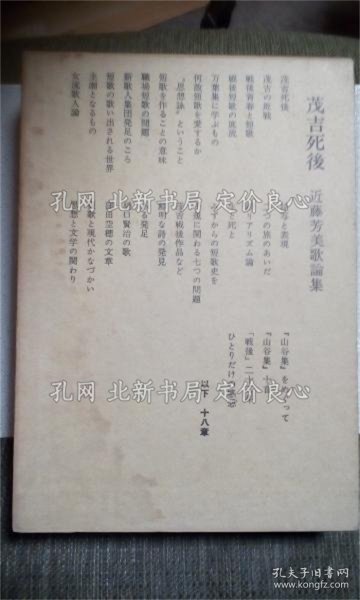 茂吉死後
近藤芳美歌論集
茂吉死後
茂吉の遊戯
戦後青春と短歌
戦後短歌の底流
万葉集に学ぶもの
何故強歌を愛するか
"思想詠"ということ
短歌を作ることの意味
職場短歌の問題
新歌人集団発足のころ
短歌の歌い出される世界
主題となるもの
女流歌人論
写と表現
つの旅のあいだ
アリズム論
と死と
ずからの短歌史を
に関わる七つの問題
戦後作品など
明な詩の発見
る発足
口賢治の歌
田空穂の文章
歌と現代かなづかい
想と文学の関わり
『山谷集』をめぐって
『山谷集』
「戦後」二十
ひとりだけの
以下 十八章
孔网 北新书局 定价良心
孔网 北新书局 定价良心
孔网 北新书局 定价良心
孔夫子旧书网
www.kongfz.com